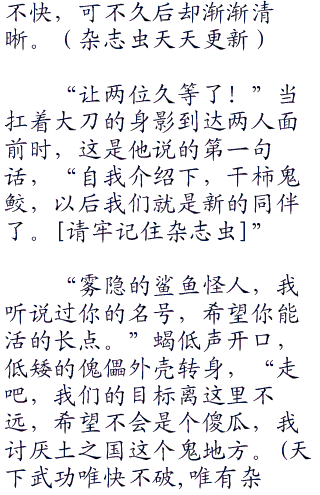 不快，可不久后却渐渐清
晰。（杂志虫天天更新）
“让两位久等了！”当
扛着大刀的身影到达两人面
前时，这是他说的第一句
话，“自我介绍下，干柿鬼
鲛，以后我们就是新的同伴
了。[请牢记住杂志虫]”
“雾隐的鲨鱼怪人，我
听说过你的名号，希望你能
活的长点。”蝎低声开口，
低矮的傀儡外壳转身，“走
吧，我们的目标离这里不
远，希望不会是个傻瓜，我
讨厌土之国这个鬼地方。(天
下武功唯快不破,唯有杂